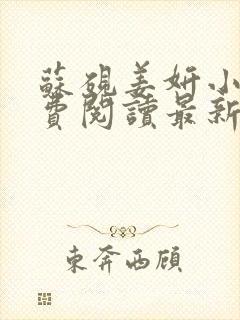 蘇硯姜妍小
費閱讀最新
東奔西顧